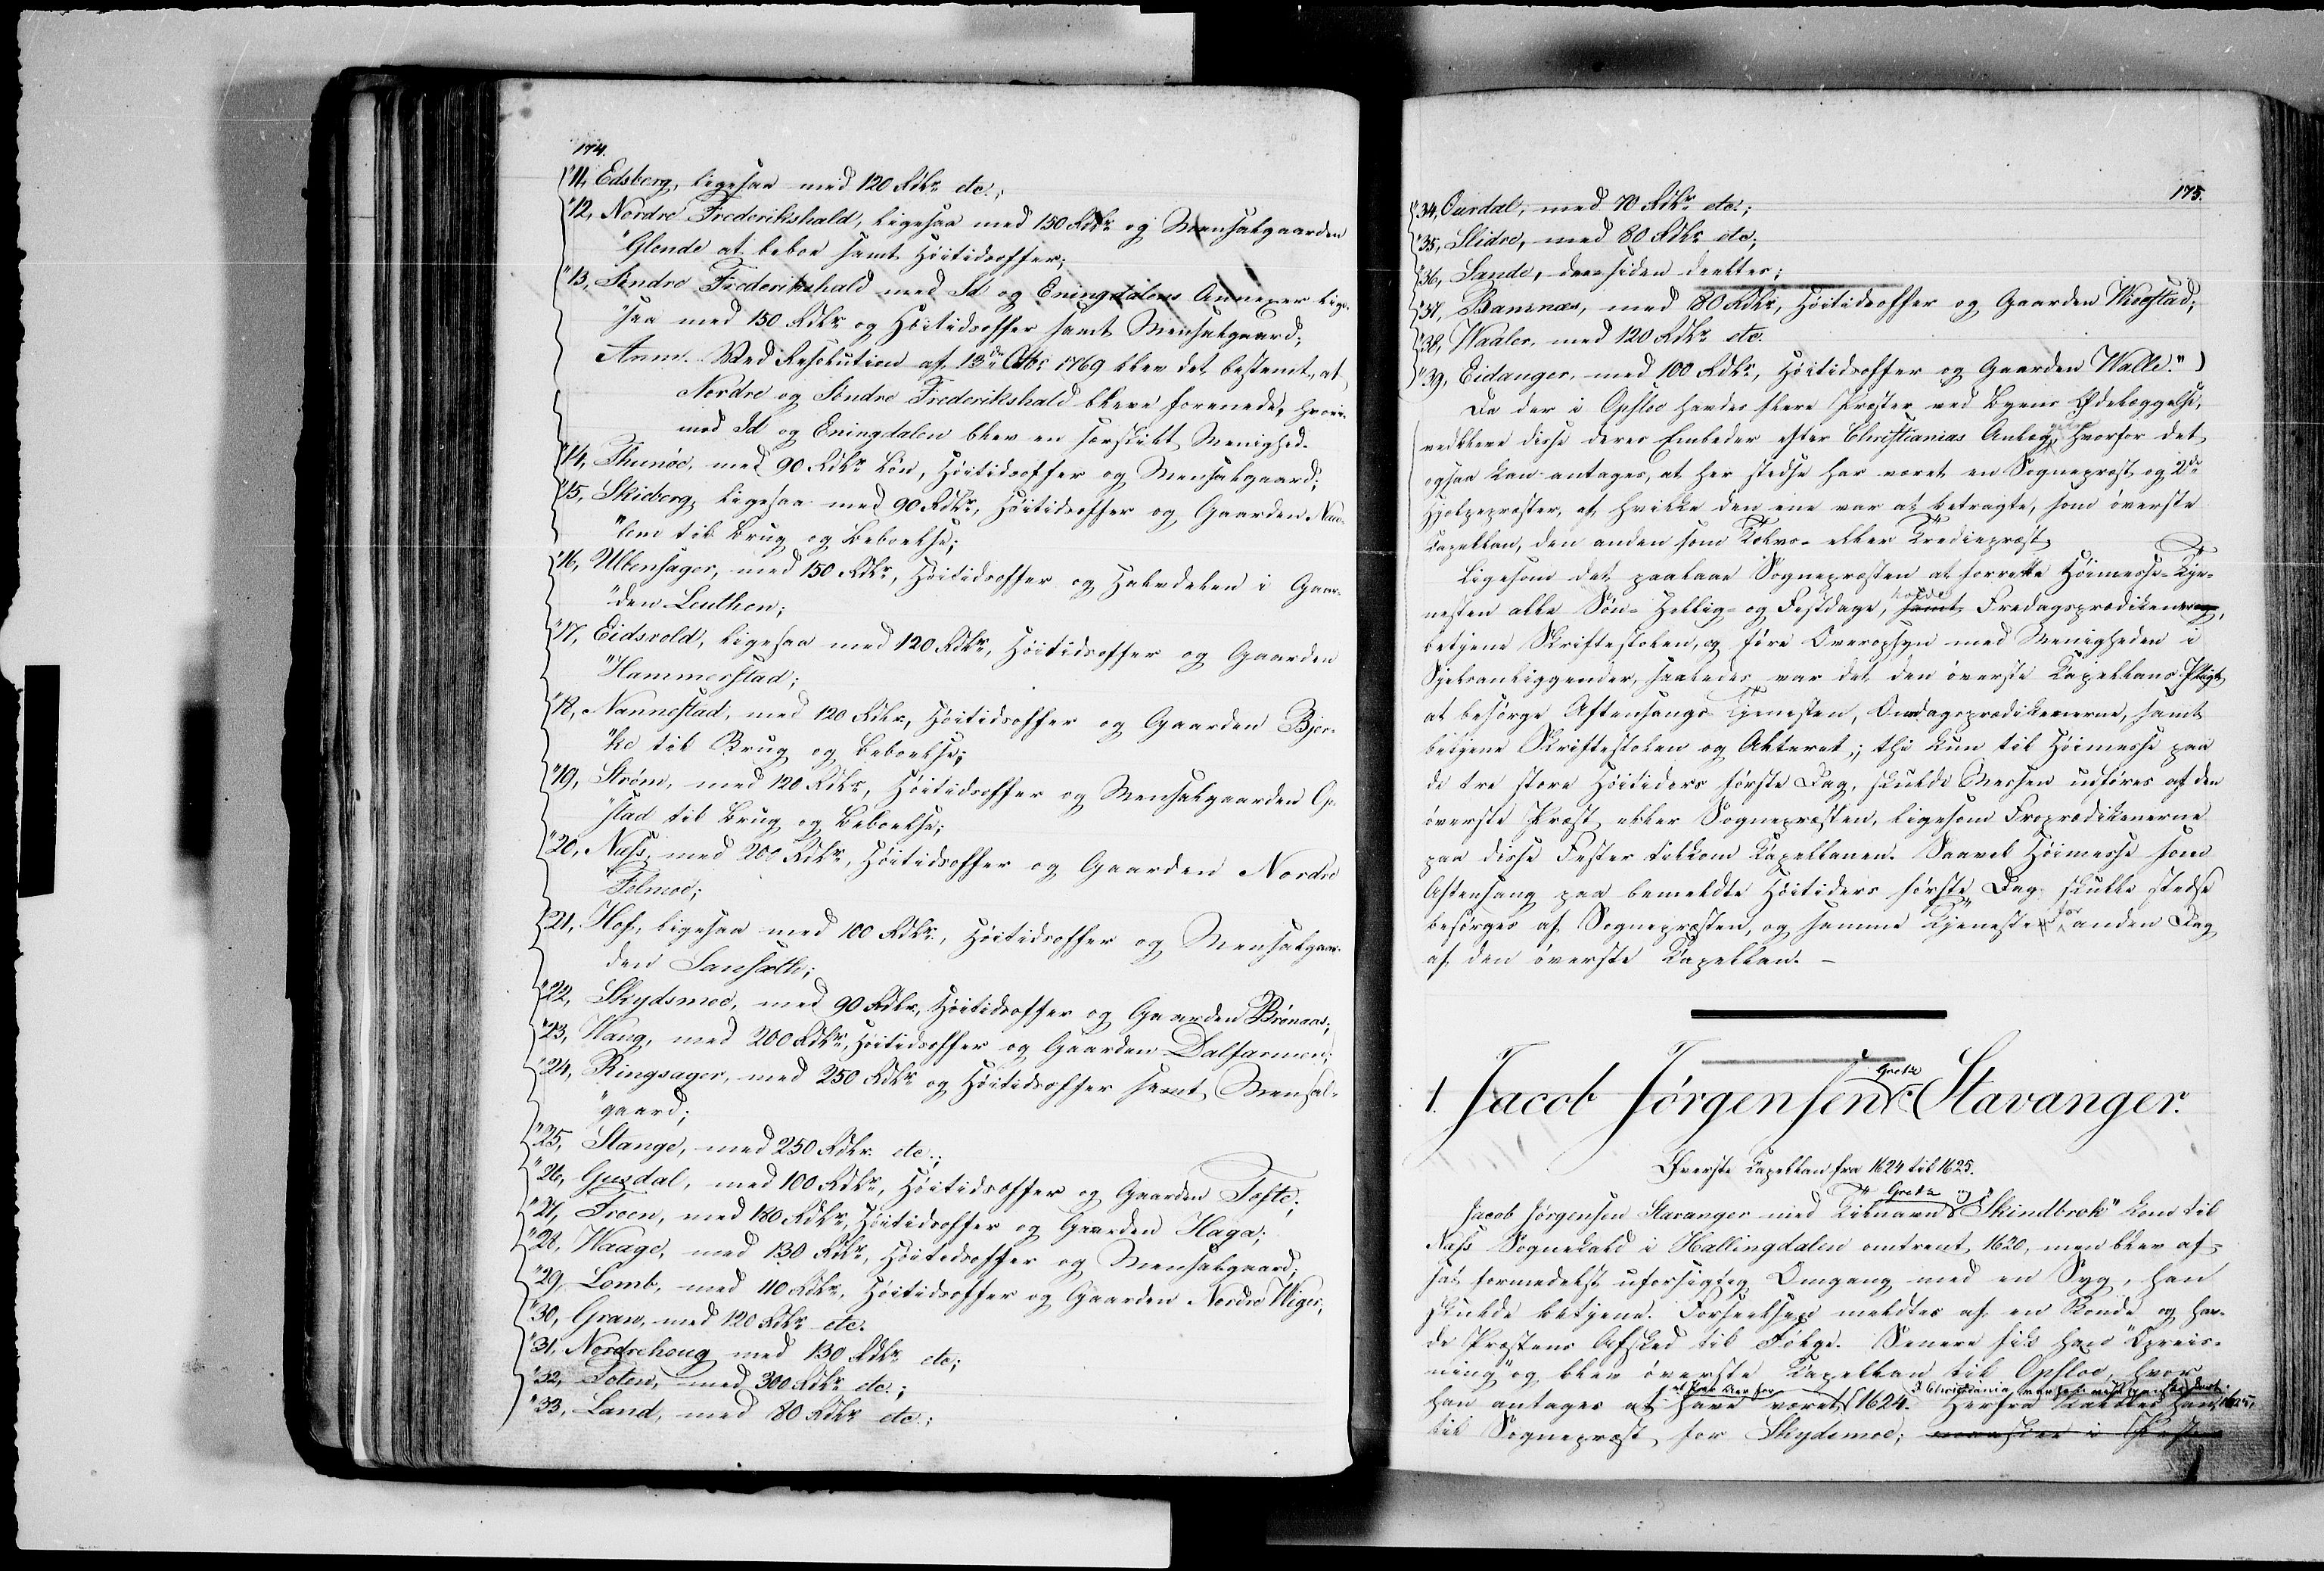 174.
"11, Edsberg, ligesaa med 120 Rdlr etc.;
"12, Nordre Frederikshald, ligesaa med 150 Rdlr og Mensalgaarden
"Glende at beboe samt Høitidsoffer;
"13, Søndre Frederikshald med Id og Eningdalens Annexer lige-
"saa med 150 Rdlr og Høitidsoffer samt Mensalgaard;
Anm. Ved Resolution af 13de Octbr 1769 blev det bestemt, at
Nordre og Søndre Frederikshald bleve forenede, hvori-
mod Id og Eningdalen blev en særskilt Menighed.
"14, Thunøe, med 90 Rdlr Løn, Høitidsoffer og Mensalgaard;
"15, Skieberg, ligesaa med 90 Rdlr, Høitidsoffer og Gaarden
"lem til Brug og Beboelse;
"16, Ullensager, med 150 Rdlr, Høitidsoffer og Halvdelen i Gaar-
"den Leuthen;
"17, Eidsvold, ligesaa med 120 Rdlr, Høitidsoffer og Gaarden
"Hammerstad;
"18, Nannestad, med 120 Rdlr, Høitidsoffer og Gaarden Bjer-
"ke til Brug og Beboelse;
"19, Strøm, med 120 Rdlr, Høitidsoffer og Mensalgaarden Op-
"stad til Brug og Beboelse;
"20, Næss, med 200 Rdlr, Høitidsoffer og Gaarden Nordre
"Folmoe;
"21, Hof, ligesaa med 100 Rdlr, Høitidsoffer og Mensalgaar-
den Sansæth;
"22, Skydsmoe, med 90 Rdlr, Høitidsoffer og Gaarden Brønaas;
"23, Waug, med 200 Rdlr, Høitidsoffer og Gaarden Dalfarmen;
"24, Ringsager, med 250 Rdlr og Høitidsoffer samt Mensal-
"gaard;
"25, Stange, med 250 Rdlr etc.;
"26, Gusdal, med 100 Rdlr, Høitidsoffer og Gaarden Tofte;
"27, Froen, med 180 Rdlr, Høitidsoffer og Gaarden Haga;
"28, Waage, med 130 Rdlr, Høitidsoffer og Mensalgaard;
"29, Lomb, med 110 Rdlr, Høitidsoffer og Gaarden Nordre Wiger;
"30, Gran, med 120 Rdlr etc.
"31, Nordrehoug med 130 Rdlr etc;
"32, Toten, med 300 Rdlr etc.;
"33, Land, med 80 Rdlr etc.;
175.
"34, Ourdal, med 70 Rdlr etc.;
"35, Slidre, med 80 Rdlr etc;
"36, Sande, siden deeltes;
"37, Bamnæs, med 80 Rdlr, Høitidsoffer og Gaarden Wiegstad;
"38, Waaler, med 120 Rdlr etc.
"39, Eidanger, med 100 Rdlr, Høitidsoffer og Gaarden Walle.")
Da der i Opsloe havdes flere Præster ved Byens Ødelæggelse,
vedbleve disse deres Embeder efter Christianias Anlæg, hvorfor det
ogsaa kan antages, at her stedse har været en Sognepræst og 2de
Hjelpepræster, af hvilke den ene var at betragte, som øverste
Kapellan, den anden som "Tolvs- eller Trediepræst".
Ligesom det paalaae Sognepræsten at forrette Høimesse-Tje-
nesten alle Søn- Hellig- og Festdage, samt holde Fredagsprædikener,
betjene Skriftestolen, og føre Overopsyn med Menigheden i
Sjelsanliggender, saaledes var det den øverste Kapellans Pligt
at besørge Aftensangs-Tjenesten, Onsdagsprædikenerne, samt
betjene Skriftestolen og Alteret; thi kun til Høimesse paa
de tre store Høitiders første Dag, skulde Messen udføres af den
øverste Præst eller Sognepræsten, ligesom Froprædikenerne
paa disse Fester tilkom Kapellanen. Saavel Høimesse som
Aftensang paa bemeldte Høitiders første Dag skulle stedse
besørges af Sognepræsten, og samme Tjeneste for anden Dag
af den øverste Kapellan. –
Gretz
1. Jacob Jørgensen Stavanger.
Øverste Kapellan fra 1624 til 1625.
Gretz og
Jacob Jørgensen Stavanger med Tilnavn "Skindbrok" kom til
Næss Sognekald i Hallingdalen omtrent 1620, men blev af-
sat formedelst uforsigtig Omgang med en Syg, han
skulde betjene. Forseelsen meldtes af en Bonde og hav-
de Præstens Afsked til Følge. Senere fik han "Opreis-
ning" og blev øverste Kapellan til Opsloe, hvor
han antages at have været 1624. Herfra kaldtes han 1625,
til Sognepræst for Skydsmoe;